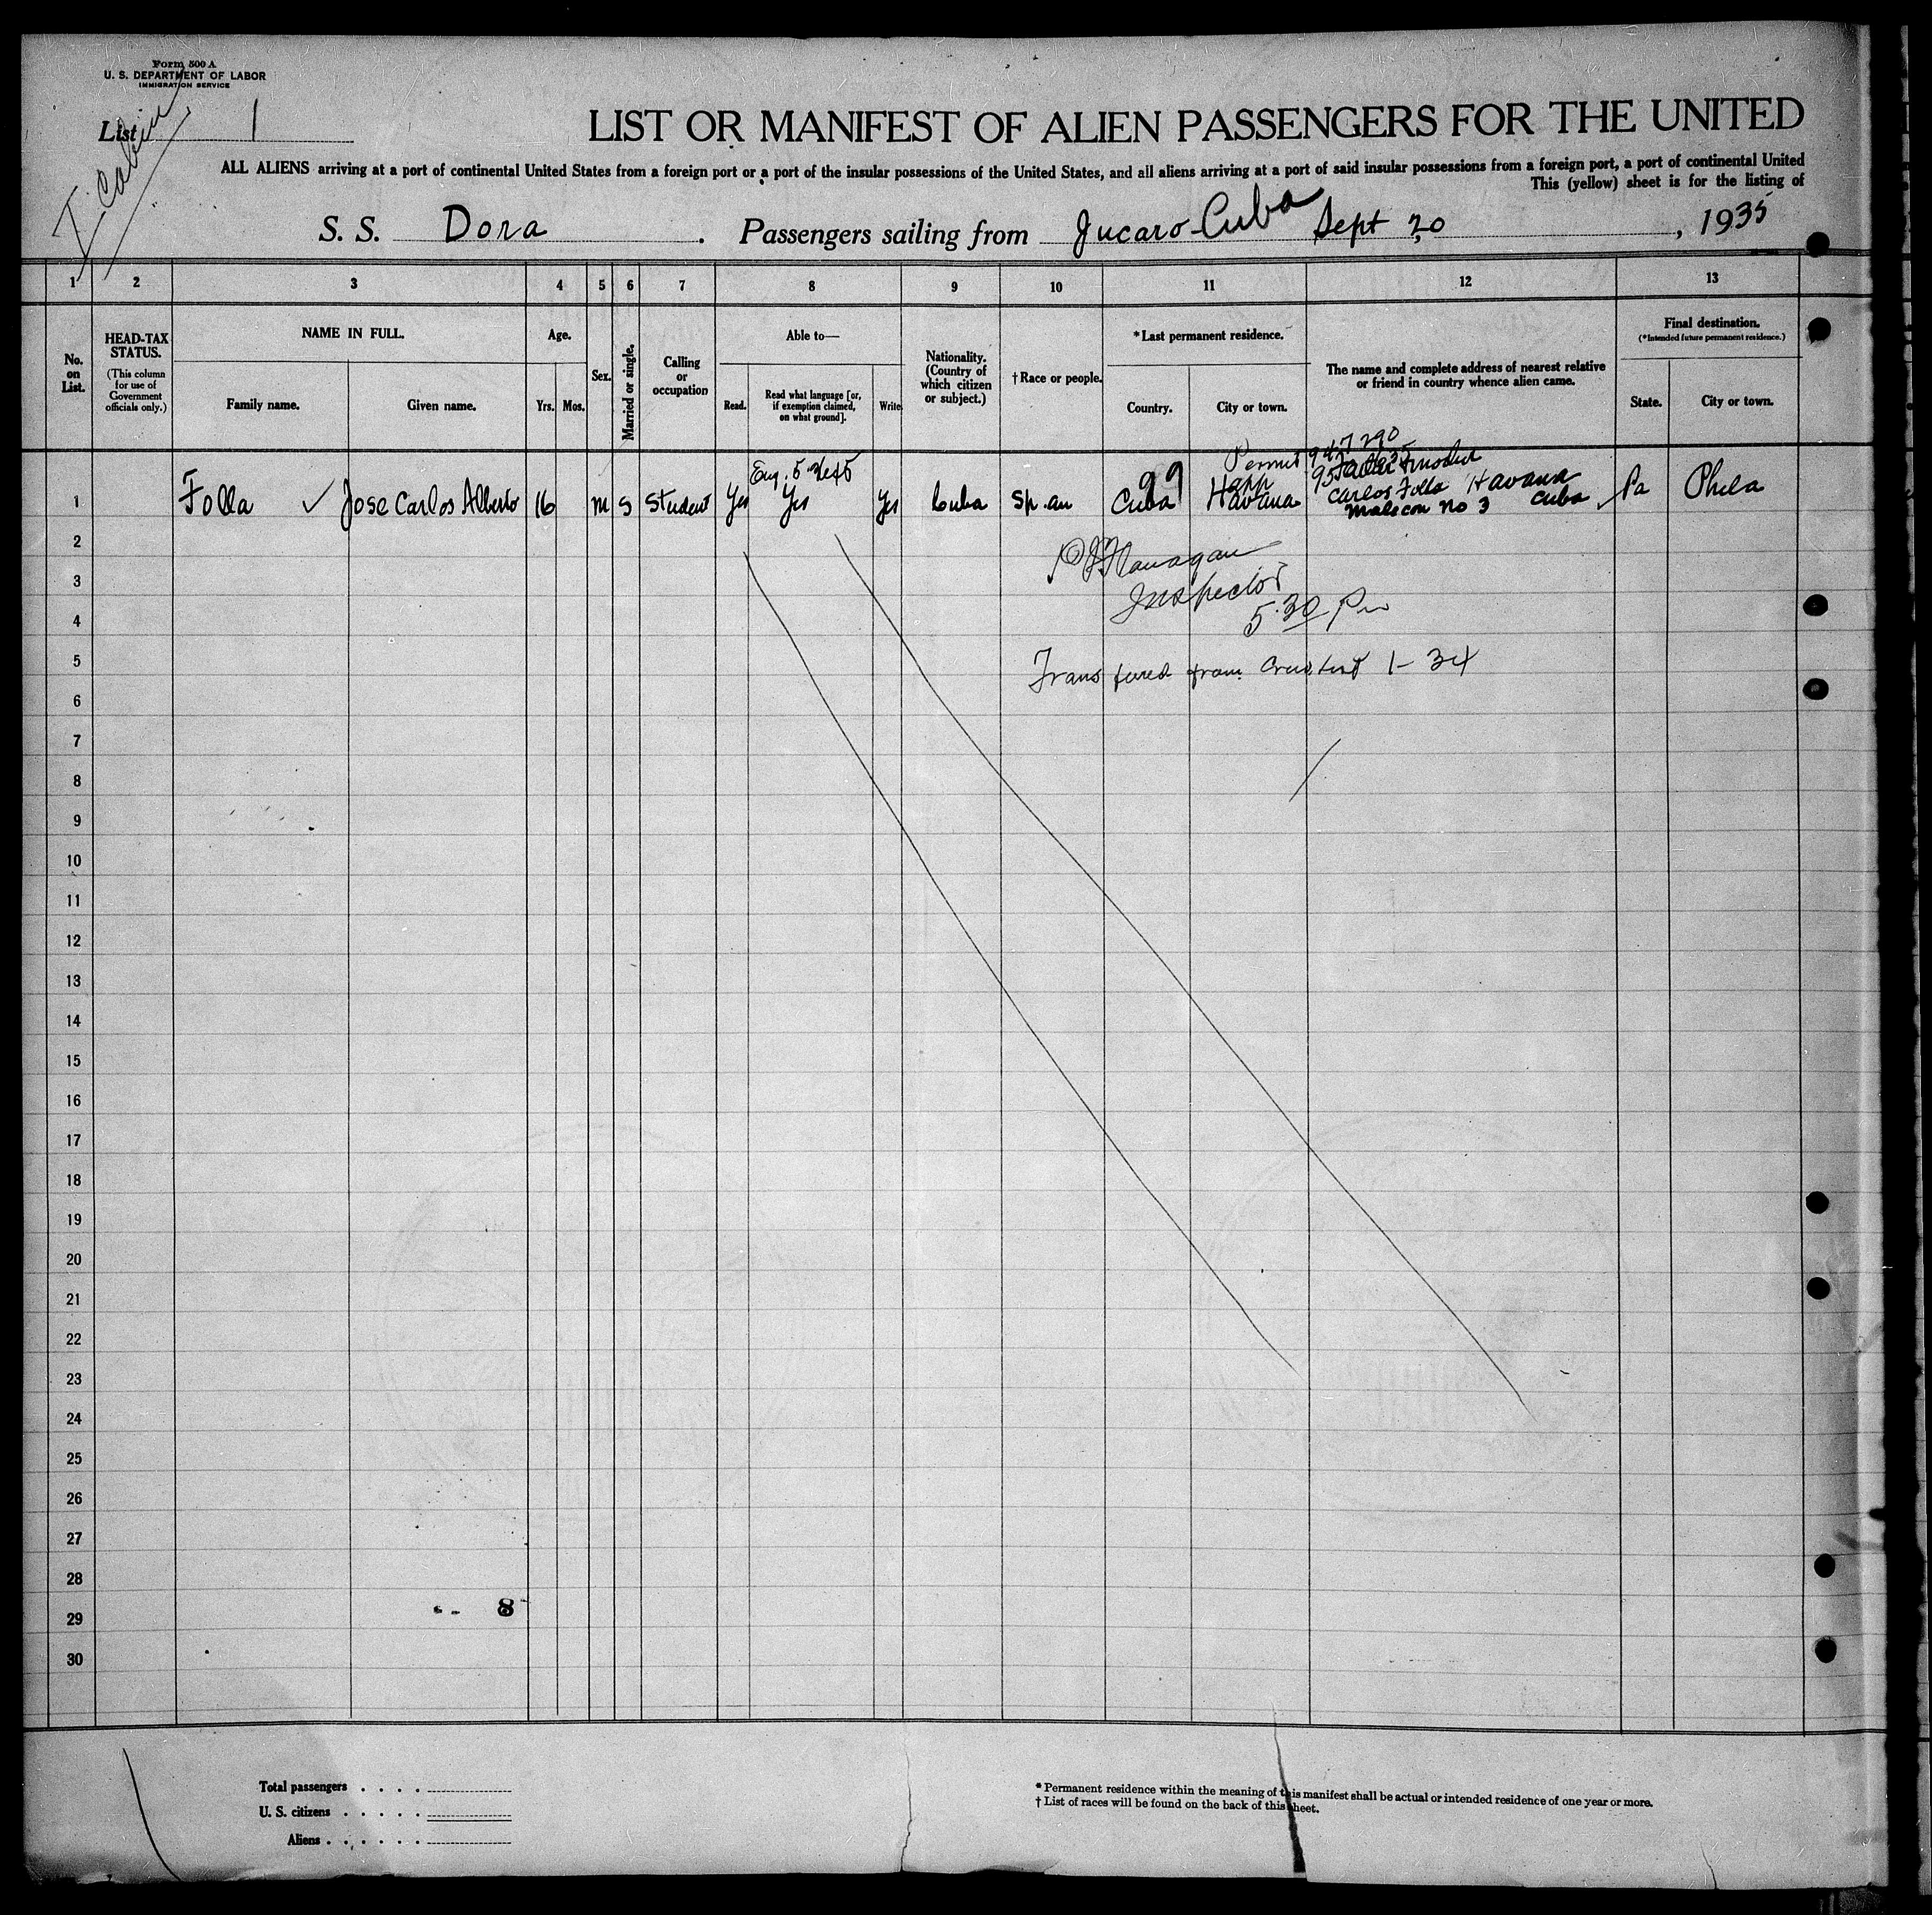 Form 500 A
U. S. DEPARTMENT OF LABOR
IMMIGRATION SERVICE
List 1
I Cabin
LIST OR MANIFEST OF ALIEN PASSENGERS FOR THE UNITED
ALL ALIENS arriving at a port of continental United States from a foreign port or a port of the insular possessions of the United States, and all aliens arriving at a port of said insular possessions from a foreign port, a port of continental United
This (yellow) sheet is for the listing of
S. S. Dora . Passengers sailing from Jucaro-Cuba Sept 20 , 1935
1 2 3 4 5 6 7 8 9 10 11 12 13
No. on List.
HEAD-TAX STATUS.
(This column for use of Government officials only.)
NAME IN FULL.
Family name. Given name.
Age.
Yrs. Mos.
Sex.
Married or single.
Calling or occupation
Able to—
Read. Read what language [or, if exemption claimed, on what ground]. Write
Nationality. (Country of which citizen or subject.)
†Race or people.
*Last permanent residence.
Country. City or town.
The name and complete address of nearest relative or friend in country whence alien came.
Final destination.
(*Intended future permanent residence.)
State. City or town.
Permit
1 Folla ✓ Jose Carlos Alberto 16 m S Student Yes Yes Yes Cuba Sp. am Cuba Havana Carlos Folla Havana Pa Phila
99
Malecon no 3 Cuba
2
3
4
5
6
7
8
9
10
11
12
13
14
15
16
17
18
19
20
21
22
23
24
25
26
27
28
29
30
Flanagan
Inspector
5:30 Pm
from 1-34
8
Total passengers . . . .
U. S. citizens . . . . .
Aliens . . . . . .
* Permanent residence within the meaning of this manifest shall be actual or intended residence of one year or more.
† List of races will be found on the back of this sheet.